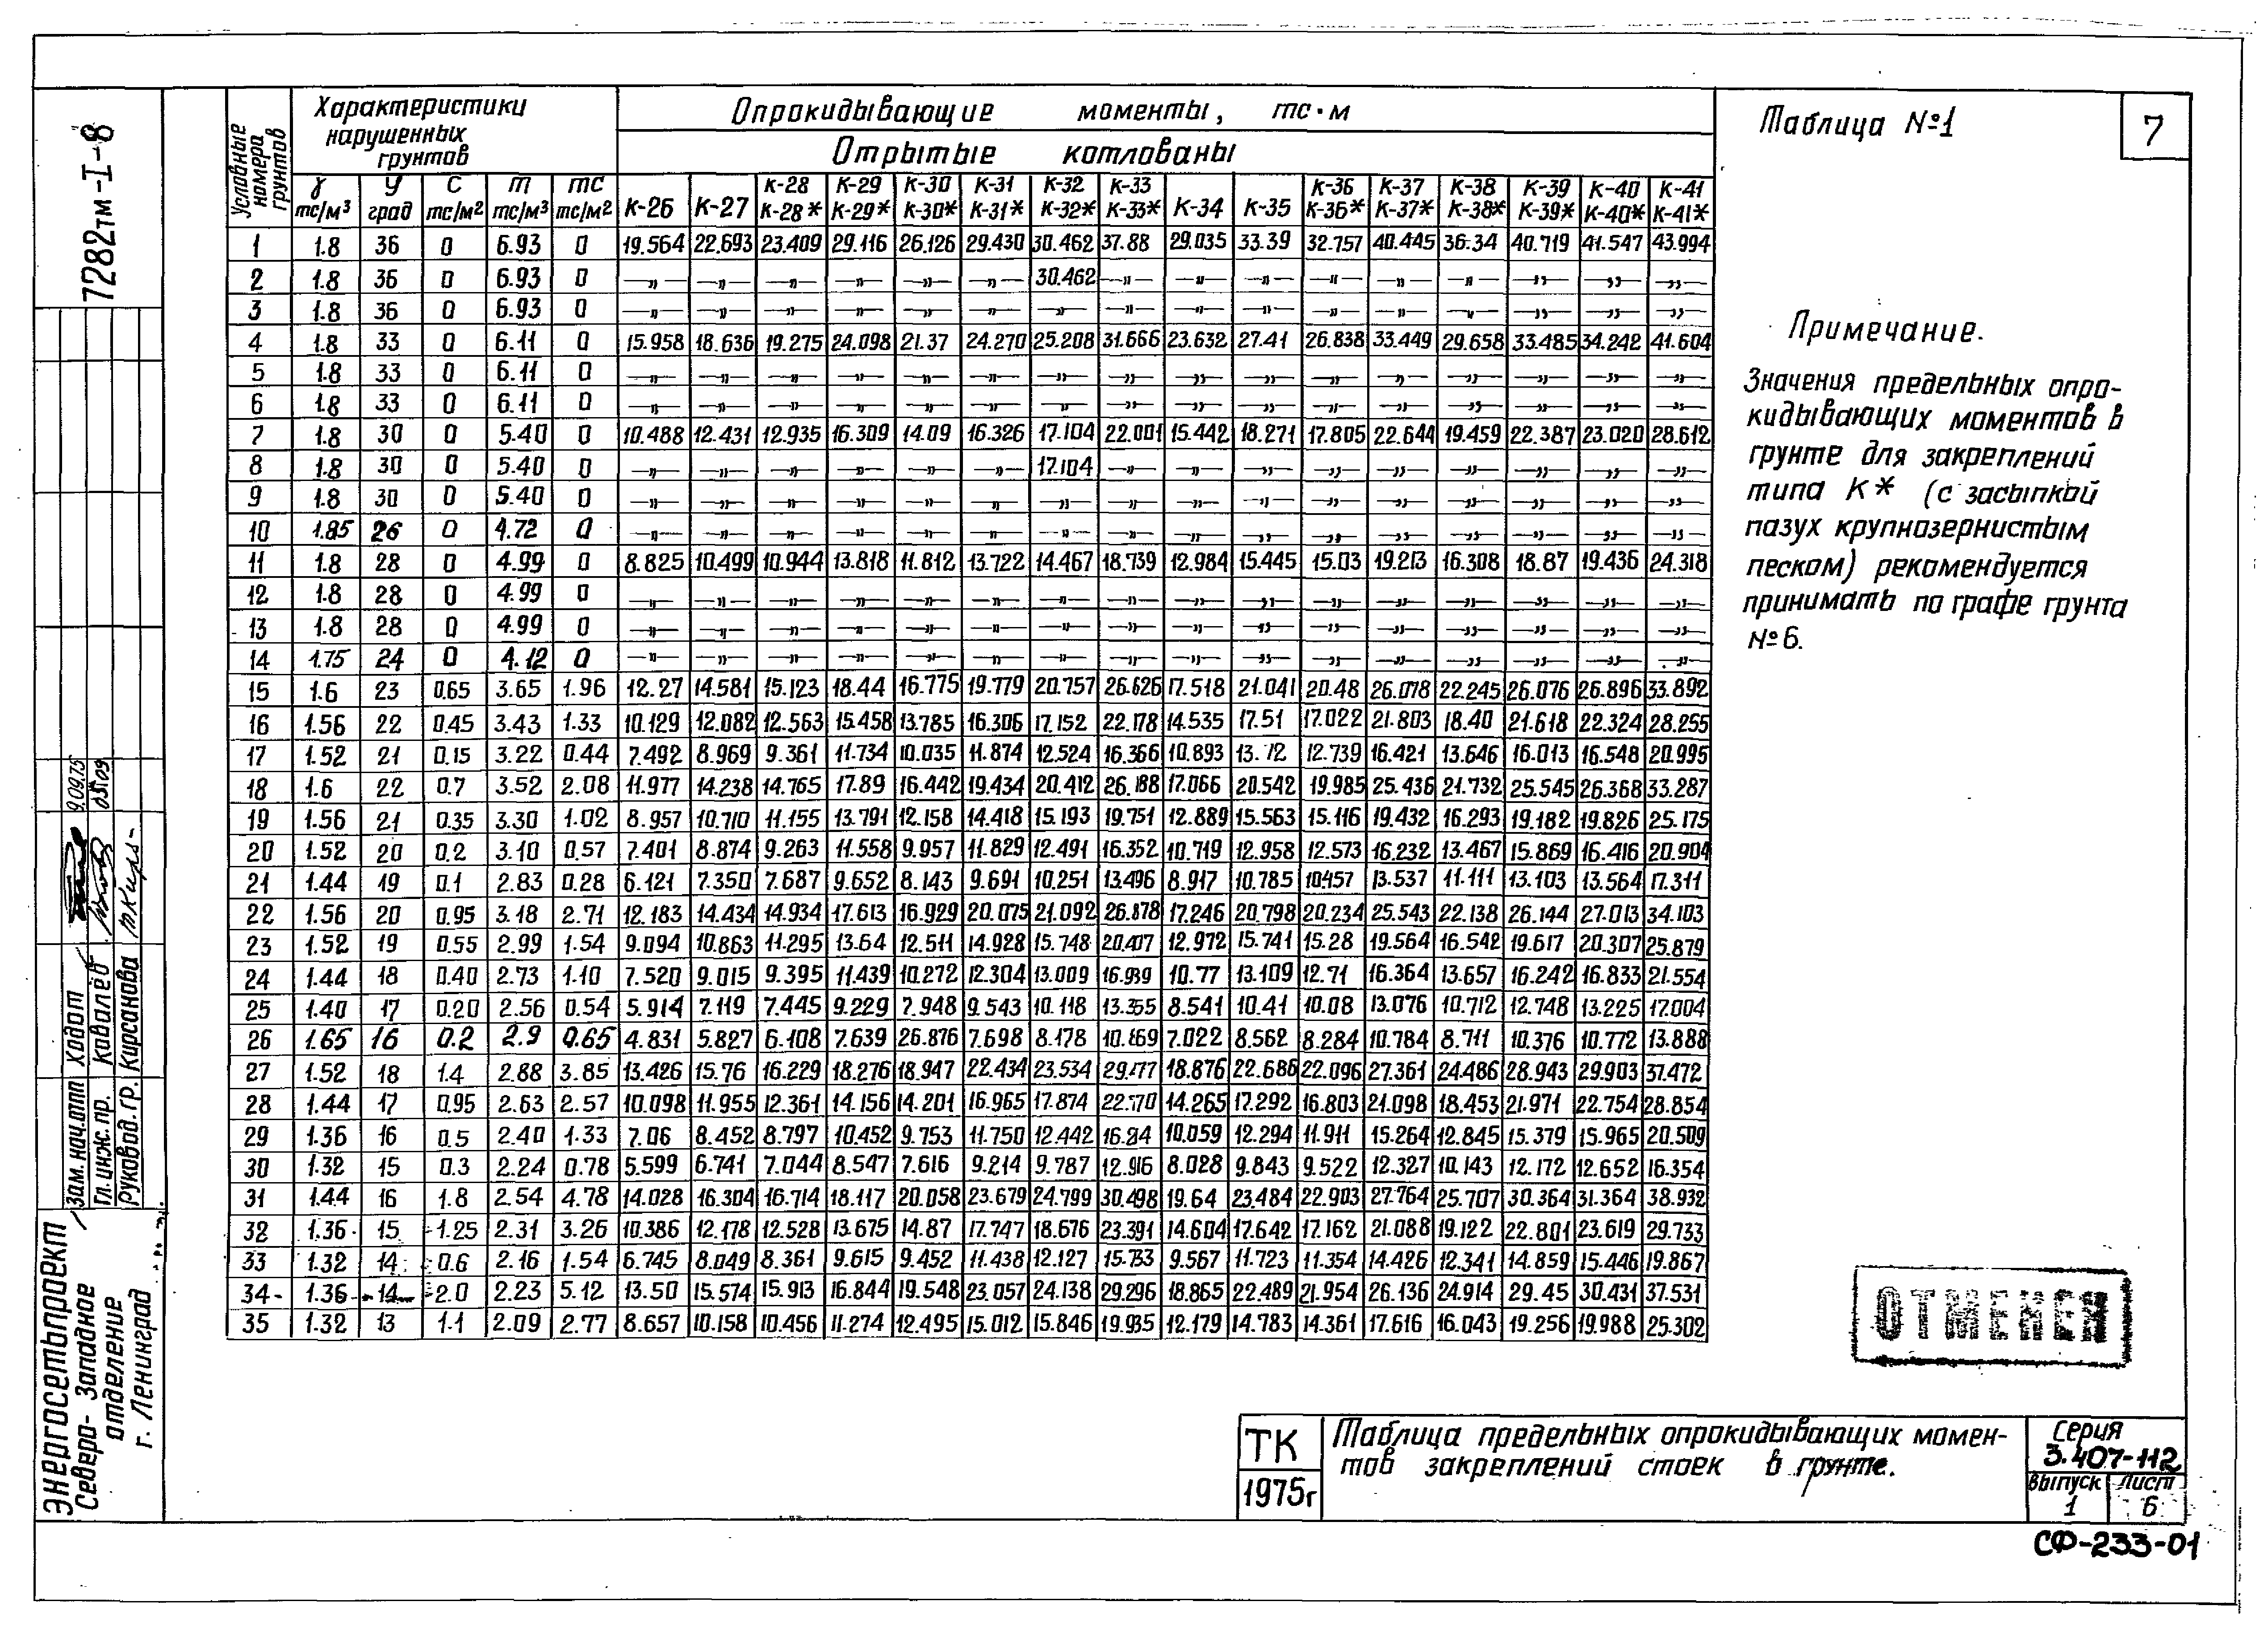 7282тм-I-8
Таблица №1
7
Условные номера грунтов
Характеристики нарушенных грунтов
Опрокидывающие моменты, тс·м
Отрытые котлованы
γ тс/м³ | φ град | C тс/м² | m тс/м³ | mc тс/м² | К-26 | К-27 | К-28 К-28* | К-29 К-29* | К-30 К-30* | К-31 К-31* | К-32 К-32* | К-33 К-33* | К-34 | К-35 | К-36 К-36* | К-37 К-37* | К-38 К-38* | К-39 К-39* | К-40 К-40* | К-41 К-41*
1 1.8 36 0 6.93 0 19.564 22.693 23.409 29.116 26.126 29.430 30.462 37.88 29.035 33.39 32.757 40.445 36.34 40.719 41.547 43.994
2 1.8 36 0 6.93 0 —„— —„— —„— —„— —„— —„— 30.462 —„— —„— —„— —„— —„— —„— —„— —„— —„—
3 1.8 36 0 6.93 0 —„— —„— —„— —„— —„— —„— —„— —„— —„— —„— —„— —„— —„— —„— —„— —„—
4 1.8 33 0 6.11 0 15.958 18.636 19.275 24.098 21.37 24.270 25.208 31.666 23.632 27.41 26.838 33.449 29.658 33.485 34.242 41.604
5 1.8 33 0 6.11 0 —„— —„— —„— —„— —„— —„— —„— —„— —„— —„— —„— —„— —„— —„— —„— —„—
6 1.8 33 0 6.11 0 —„— —„— —„— —„— —„— —„— —„— —„— —„— —„— —„— —„— —„— —„— —„— —„—
7 1.8 30 0 5.40 0 10.488 12.431 12.935 16.309 14.09 16.326 17.104 22.001 15.442 18.271 17.805 22.644 19.459 22.387 23.020 28.612
8 1.8 30 0 5.40 0 —„— —„— —„— —„— —„— —„— 17.104 —„— —„— —„— —„— —„— —„— —„— —„— —„—
9 1.8 30 0 5.40 0 —„— —„— —„— —„— —„— —„— —„— —„— —„— —„— —„— —„— —„— —„— —„— —„—
10 1.85 26 0 4.72 0 —„— —„— —„— —„— —„— —„— —„— —„— —„— —„— —„— —„— —„— —„— —„— —„—
11 1.8 28 0 4.99 0 8.825 10.499 10.944 13.818 11.812 13.722 14.467 18.739 12.984 15.445 15.03 19.213 16.308 18.87 19.436 24.318
12 1.8 28 0 4.99 0 —„— —„— —„— —„— —„— —„— —„— —„— —„— —„— —„— —„— —„— —„— —„— —„—
13 1.8 28 0 4.99 0 —„— —„— —„— —„— —„— —„— —„— —„— —„— —„— —„— —„— —„— —„— —„— —„—
14 1.75 24 0 4.12 0 —„— —„— —„— —„— —„— —„— —„— —„— —„— —„— —„— —„— —„— —„— —„— —„—
15 1.6 23 0.65 3.65 1.96 12.27 14.581 15.123 18.44 16.775 19.779 20.757 26.626 17.518 21.041 20.48 26.078 22.245 26.076 26.896 33.892
16 1.56 22 0.45 3.43 1.33 10.129 12.082 12.563 15.458 13.785 16.306 17.152 22.178 14.535 17.51 17.022 21.803 18.40 21.618 22.324 28.255
17 1.52 21 0.15 3.22 0.44 7.492 8.969 9.361 11.734 10.035 11.874 12.524 16.366 10.893 13.12 12.739 16.421 13.646 16.013 16.548 20.995
18 1.6 22 0.7 3.52 2.08 11.977 14.238 14.765 17.89 16.442 19.434 20.412 26.188 17.066 20.542 19.985 25.436 21.732 25.545 26.368 33.287
19 1.56 21 0.35 3.30 1.02 8.957 10.710 11.155 13.791 12.158 14.418 15.193 19.751 12.889 15.563 15.116 19.432 16.293 19.182 19.826 25.175
20 1.52 20 0.2 3.10 0.57 7.401 8.874 9.263 11.558 9.957 11.829 12.491 16.352 10.719 12.958 12.573 16.232 13.467 15.869 16.416 20.904
21 1.44 19 0.1 2.83 0.28 6.121 7.350 7.687 9.652 8.143 9.691 10.251 13.496 8.917 10.785 10.457 13.537 11.111 13.103 13.564 17.311
22 1.56 20 0.95 3.18 2.71 12.183 14.434 14.934 17.613 16.929 20.075 21.092 26.878 17.246 20.798 20.234 25.543 22.138 26.144 27.013 34.103
23 1.52 19 0.55 2.99 1.54 9.094 10.863 11.295 13.64 12.511 14.928 15.748 20.417 12.972 15.741 15.28 19.564 16.542 19.617 20.307 25.879
24 1.44 18 0.40 2.73 1.10 7.520 9.015 9.395 11.439 10.272 12.304 13.009 16.939 10.77 13.109 12.71 16.364 13.657 16.242 16.833 21.554
25 1.40 17 0.20 2.56 0.54 5.914 7.119 7.445 9.229 7.948 9.543 10.118 13.355 8.541 10.41 10.08 13.076 10.712 12.748 13.225 17.004
26 1.65 16 0.2 2.9 0.65 4.831 5.827 6.108 7.639 26.876 7.698 8.178 10.869 7.022 8.562 8.284 10.784 8.711 10.376 10.772 13.888
27 1.52 18 1.4 2.88 3.85 13.426 15.76 16.229 18.276 18.947 22.434 23.534 29.477 18.876 22.686 22.096 27.361 24.486 28.943 29.903 37.472
28 1.44 17 0.95 2.63 2.57 10.098 11.955 12.361 14.156 14.201 16.965 17.874 22.770 14.265 17.292 16.803 21.098 18.453 21.971 22.754 28.854
29 1.36 16 0.5 2.40 1.33 7.06 8.452 8.797 10.452 9.753 11.750 12.442 16.24 10.059 12.294 11.911 15.264 12.845 15.379 15.965 20.509
30 1.32 15 0.3 2.24 0.78 5.599 6.741 7.044 8.547 7.616 9.214 9.787 12.916 8.028 9.843 9.522 12.327 10.143 12.172 12.652 16.354
31 1.44 16 1.8 2.54 4.78 14.028 16.304 16.714 18.117 20.058 23.679 24.799 30.498 19.64 23.484 22.903 27.764 25.707 30.364 31.364 38.932
32 1.36 15 1.25 2.31 3.26 10.386 12.178 12.528 13.675 14.87 17.747 18.676 23.391 14.604 17.642 17.162 21.088 19.122 22.801 23.619 29.733
33 1.32 14 0.6 2.16 1.54 6.745 8.049 8.361 9.615 9.452 11.438 12.127 15.733 9.567 11.723 11.354 14.426 12.341 14.859 15.446 19.867
34 1.36 14 2.0 2.23 5.12 13.50 15.574 15.913 16.844 19.548 23.057 24.138 29.296 18.865 22.489 21.954 26.136 24.914 29.45 30.431 37.531
35 1.32 13 1.1 2.09 2.77 8.657 10.158 10.456 11.274 12.495 15.012 15.846 19.935 12.179 14.783 14.361 17.616 16.043 19.256 19.988 25.302
Примечание.
Значения предельных опро-
кидывающих моментов в
грунте для закреплений
типа К* (с засыпкой
пазух крупнозернистым
песком) рекомендуется
принимать по графе грунта
№6.
ОТМЕНЕН
9.09.75
03.09
Зам. нач. отп Ходот
Гл. инж. пр. Ковалёв
Руковод. гр. Кирсанова
Энергосетьпроект
Северо-Западное
отделение
г. Ленинград
ТК
1975г
Таблица предельных опрокидывающих момен-
тов закреплений стоек в грунте.
Серия
3.407-112
Выпуск
1
Лист
6
СФ-233-01